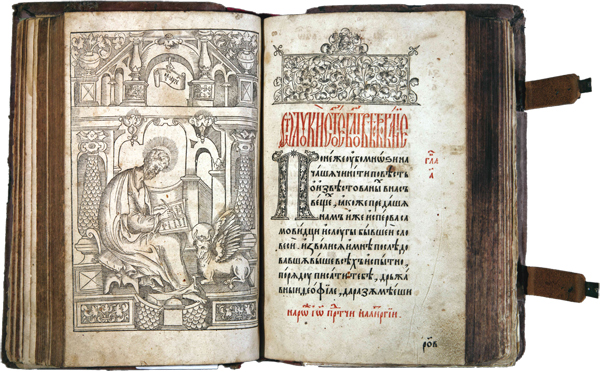 Понежеоубомноѕина
чашачинитиповѣсть
ѡизвѣстованыⷯвънас
веще, ꙗкожепредаша
намъ иже исперваса
мовидци ислоугы бывшеи сло
веси. изволисяимнѣ послѣдо
вавшꙋвышевсѣхъиспытно,
порядꙋ писати тебѣ, дръжа
вныи ѳеофиле, даразꙋмѣеши
гла
а